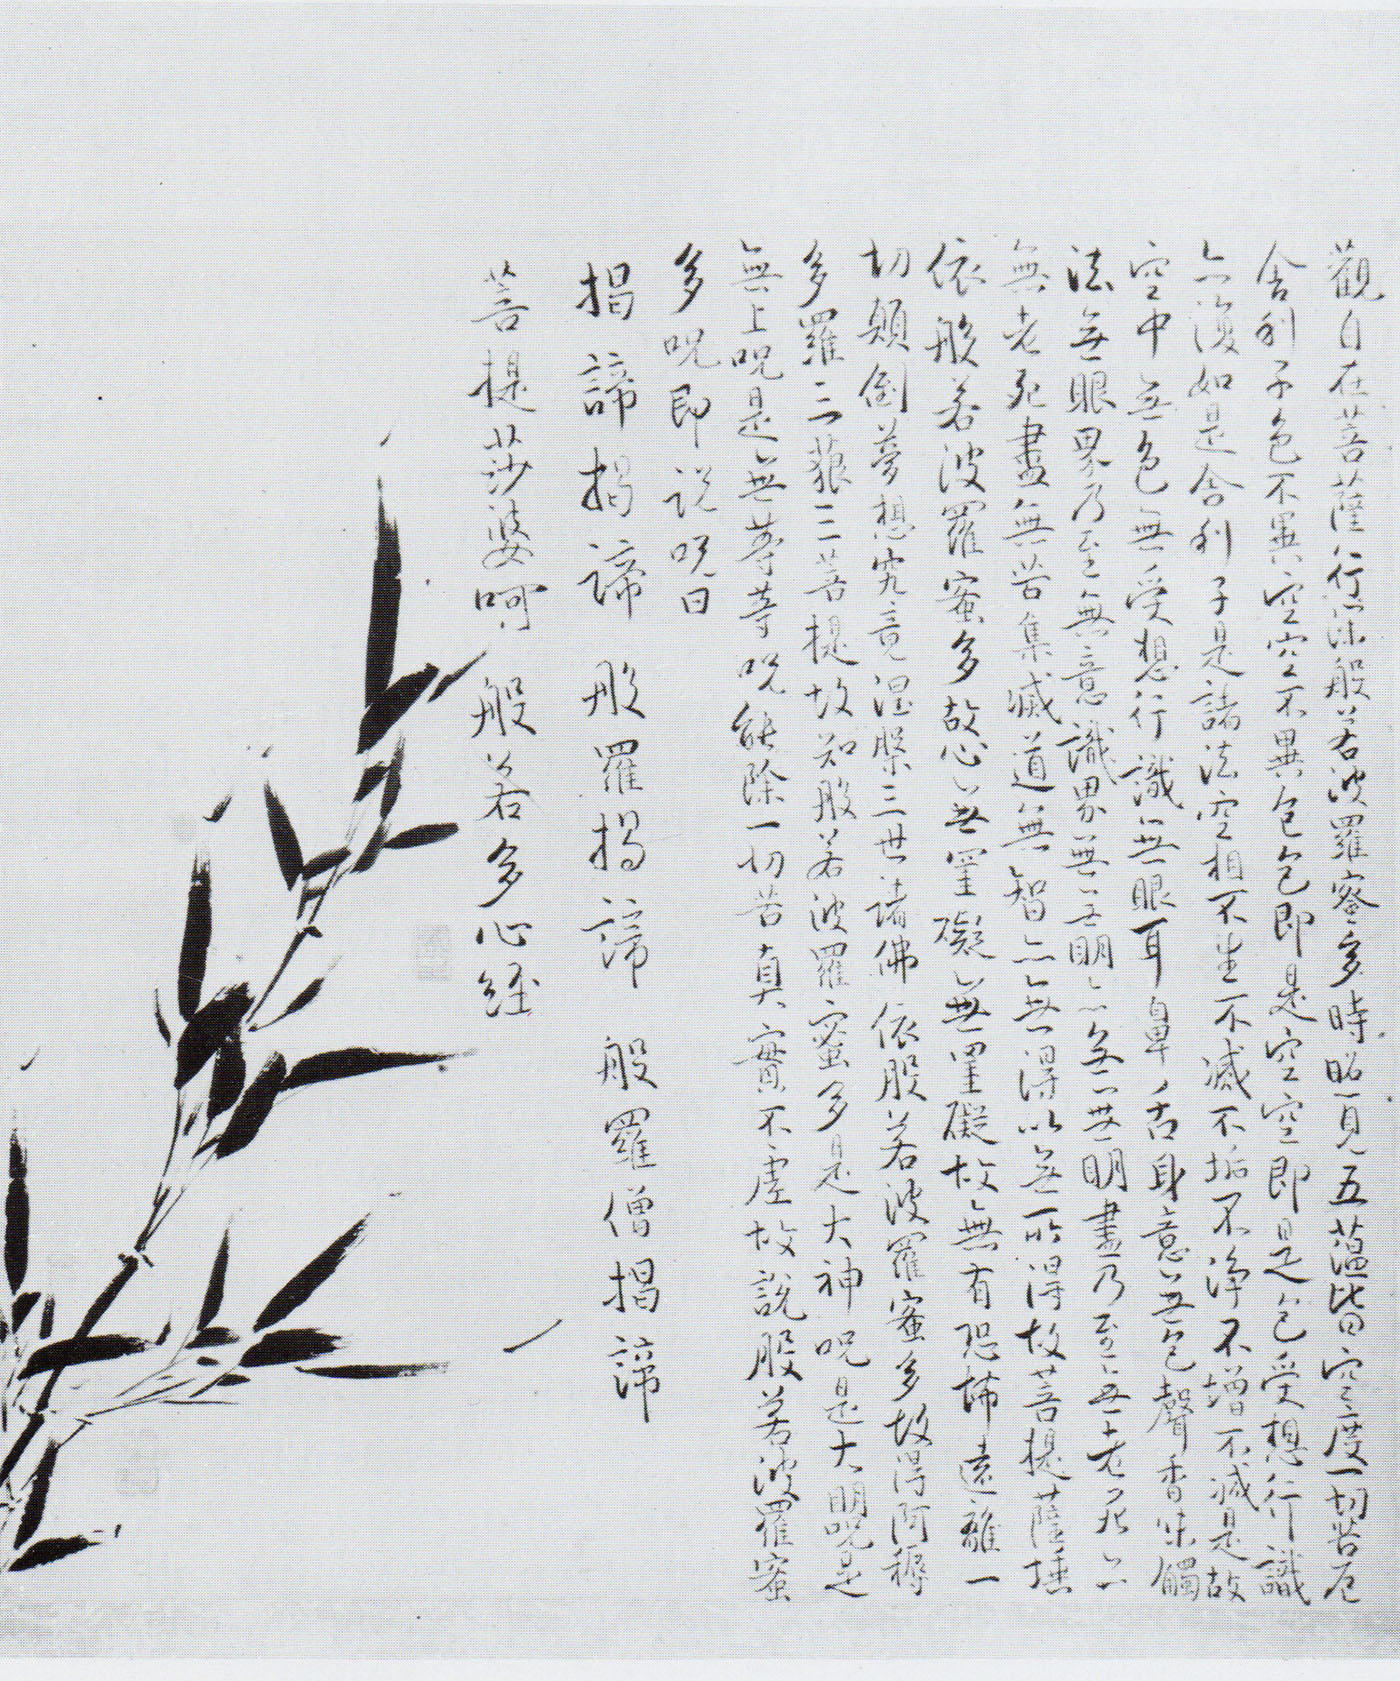 觀自在菩薩行深般若波羅蜜多時照見五蘊皆空度一切苦厄
舍利子色不異空空不異色色即是空空即是色受想行識
亦復如是舍利子是諸法空相不生不滅不垢不淨不增不減是故
空中無色無受想行識無眼耳鼻舌身意無色聲香味觸
法無眼界乃至無意識界無無明亦無無明盡乃至無老死亦
無老死盡無苦集滅道無智亦無得以無所得故菩提薩埵
依般若波羅蜜多故心無罣礙無罣礙故無有恐怖遠離一
切顛倒夢想究竟涅槃三世諸佛依般若波羅蜜多故得阿耨
多羅三藐三菩提故知般若波羅蜜多是大神呪是大明呪是
無上呪是無等等呪能除一切苦真實不虛故說般若波羅蜜
多呪即說呪曰
揭諦揭諦 般羅揭諦 般羅僧揭諦
菩提莎婆呵 般若多心經